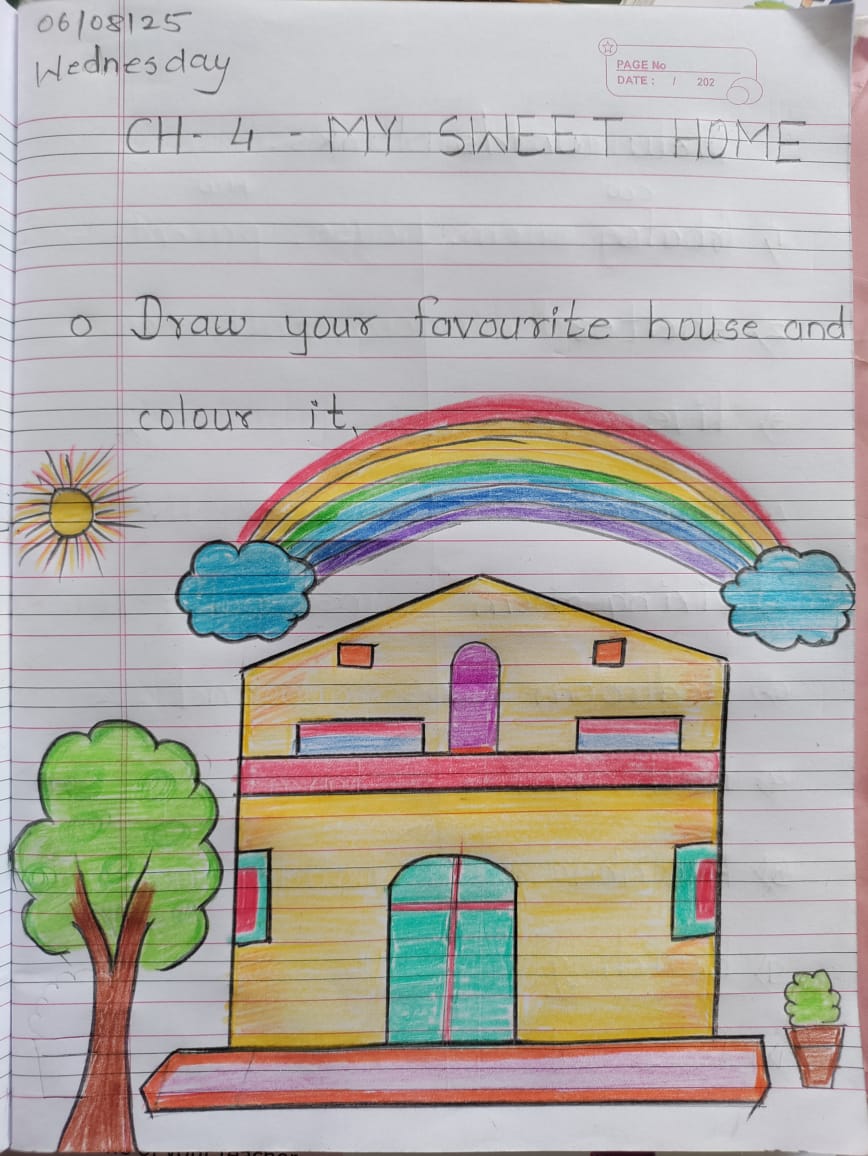 06/08/25
Wednesday
PAGE No
DATE : / 202
CH- 4 - MY SWEET HOME
o Draw your favourite house and
colour it.